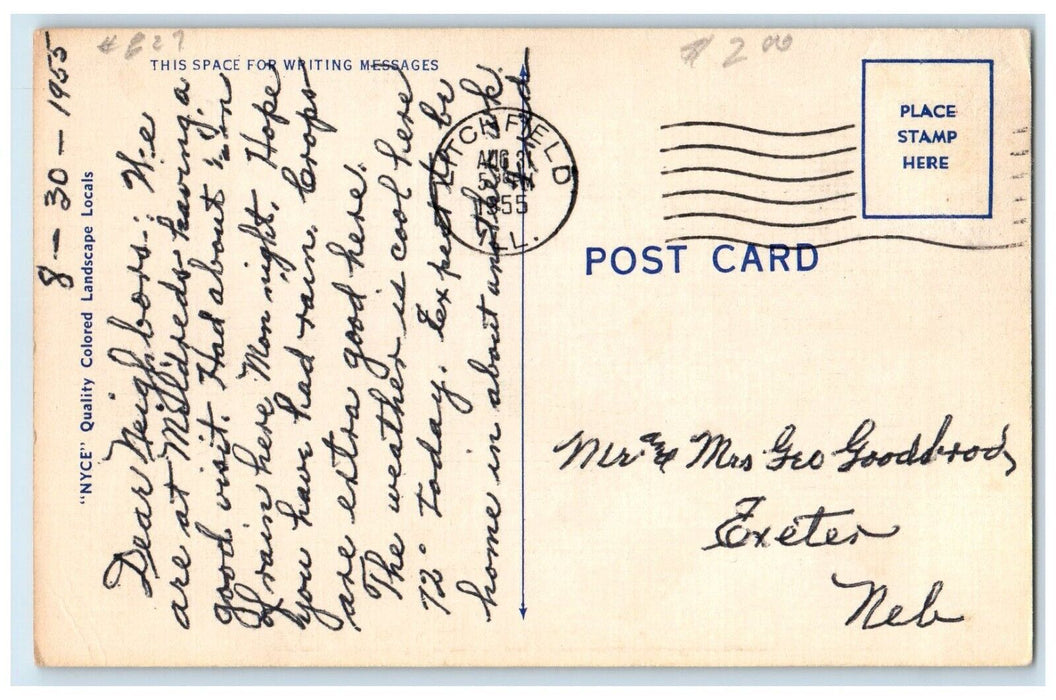 # 827
$ 2 00
THIS SPACE FOR WRITING MESSAGES
"NYCE" Quality Colored Landscape Locals
8-30-1955
Dear Neighbors: We
are at Mildreds having a
good visit. Had about ½ in
of rain here Mon night. Hope
you have had rain. Crops
are extra good here.
The weather is cool here
72° today. Expect to be
home in about another wk.
LITCHFIELD
AUG 31
1955
ILL.
PLACE
STAMP
HERE
POST CARD
Mr & Mrs Geo Goodbrod,
Exeter
Neb